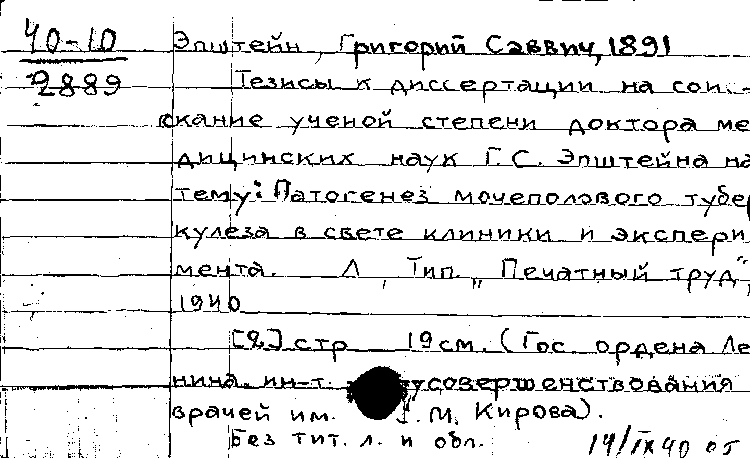 40-10
2889
Эпштейн, Григорий Саввич, 1891
Тезисы к диссертации на сои-
скание ученой степени доктора ме
дицинских наук Г.С. Эпштейна на
тему: Патогенез мочеполового тубер
кулеза в свете клиники и экспери
мента. Л, Тип. „Печатный труд",
1940
[2] стр 19 см. (Гос. ордена Ле
нина. ин-т. усовершенствования
врачей им. М. Кирова).
Без тит. л. и обл.
14/IX 40